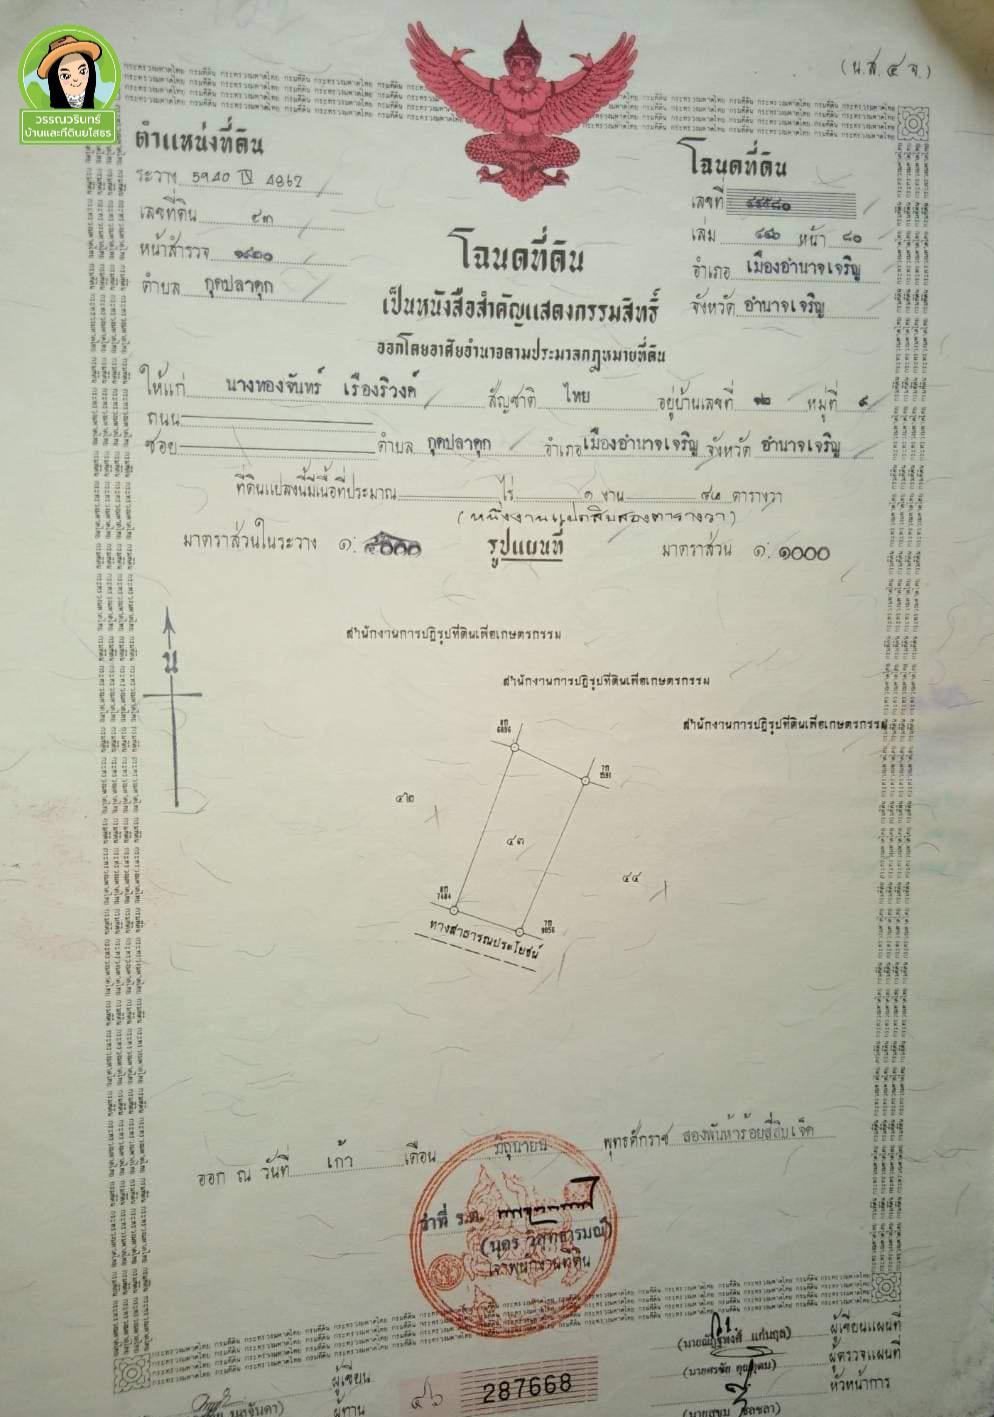 วรรณวรินทร์
บ้านและที่ดินยโสธร
(น.ส. ๔ จ.)
ตำแหน่งที่ดิน
ระวาง 5940 IV 4862
เลขที่ดิน ๔๓
หน้าสำรวจ ๑๘๒๐
ตำบล กุดปลาดุก
โฉนดที่ดิน
เลขที่ ๔๔๕๘๐
เล่ม ๔๔๖ หน้า ๘๐
อำเภอ เมืองอำนาจเจริญ
จังหวัด อำนาจเจริญ
โฉนดที่ดิน
เป็นหนังสือสำคัญแสดงกรรมสิทธิ์
ออกโดยอาศัยอำนาจตามประมวลกฎหมายที่ดิน
ให้แก่ นางทองจันทร์ เรืองริวงค์ สัญชาติ ไทย อยู่บ้านเลขที่ ๑๒ หมู่ที่ ๙
ถนน
ซอย ตำบล กุดปลาดุก อำเภอ เมืองอำนาจเจริญ จังหวัด อำนาจเจริญ
ที่ดินแปลงนี้มีเนื้อที่ประมาณ ไร่ ๑ งาน ๘๒ ตารางวา
(หนึ่งงานแปดสิบสองตารางวา)
มาตราส่วนในระวาง ๑: ๔๐๐๐ รูปแผนที่ มาตราส่วน ๑: ๑๐๐๐
น
สำนักงานการปฏิรูปที่ดินเพื่อเกษตรกรรม
สำนักงานการปฏิรูปที่ดินเพื่อเกษตรกรรม
สำนักงานการปฏิรูปที่ดินเพื่อเกษตรกรรม
๔๒
๔๓
๔๔
7484
9056
ทางสาธารณประโยชน์
ออก ณ วันที่ เก้า เดือน มิถุนายน พุทธศักราช สองพันห้าร้อยสี่สิบเจ็ด
ว่าที่ ร.ต.
เจ้าพนักงานที่ดิน
ผู้เขียนแผนที่
ผู้ตรวจแผนที่
หัวหน้าการ
ผู้เขียน
ผู้ทาน
๔๖ 287668